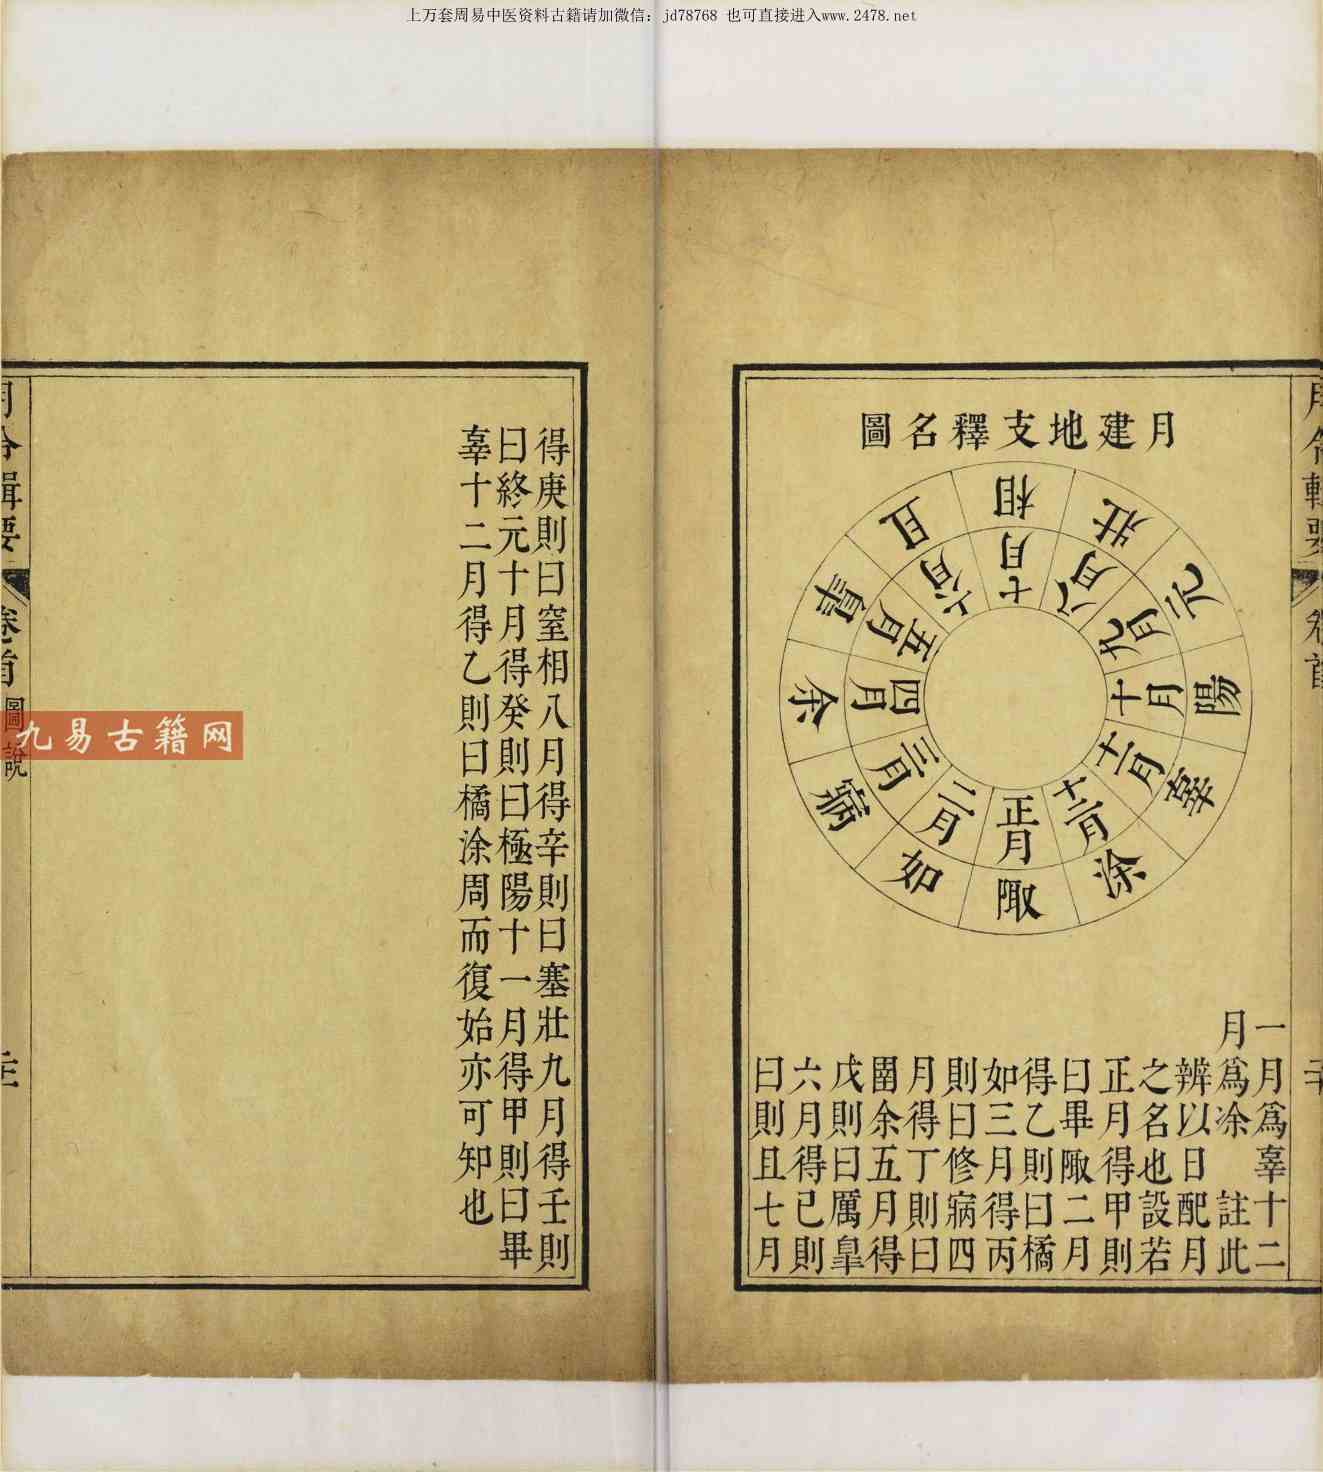 上万套周易中医资料古籍请加微信：jd78768 也可直接进入www.2478.net
月建地支釋名圖
相
壯
元
陽
辜
涂
陬
如
寎
余
皐
且
七月
八月
九月
十月
十一月
十二月
正月
二月
三月
四月
五月
六月
一月爲辜十二
月爲涂　註此
辨以日配月
之名也設若
正月得甲則
曰畢陬二月
得乙則曰橘
如三月得丙
則曰修寎四
月得丁則曰
圉余五月得
戊則曰厲皐
六月得已則
曰則且七月
得庚則曰窒相八月得辛則曰塞壯九月得壬則
曰終元十月得癸則曰極陽十一月得甲則曰畢
辜十二月得乙則曰橘涂周而復始亦可知也
卷首
圖說
九易古籍网